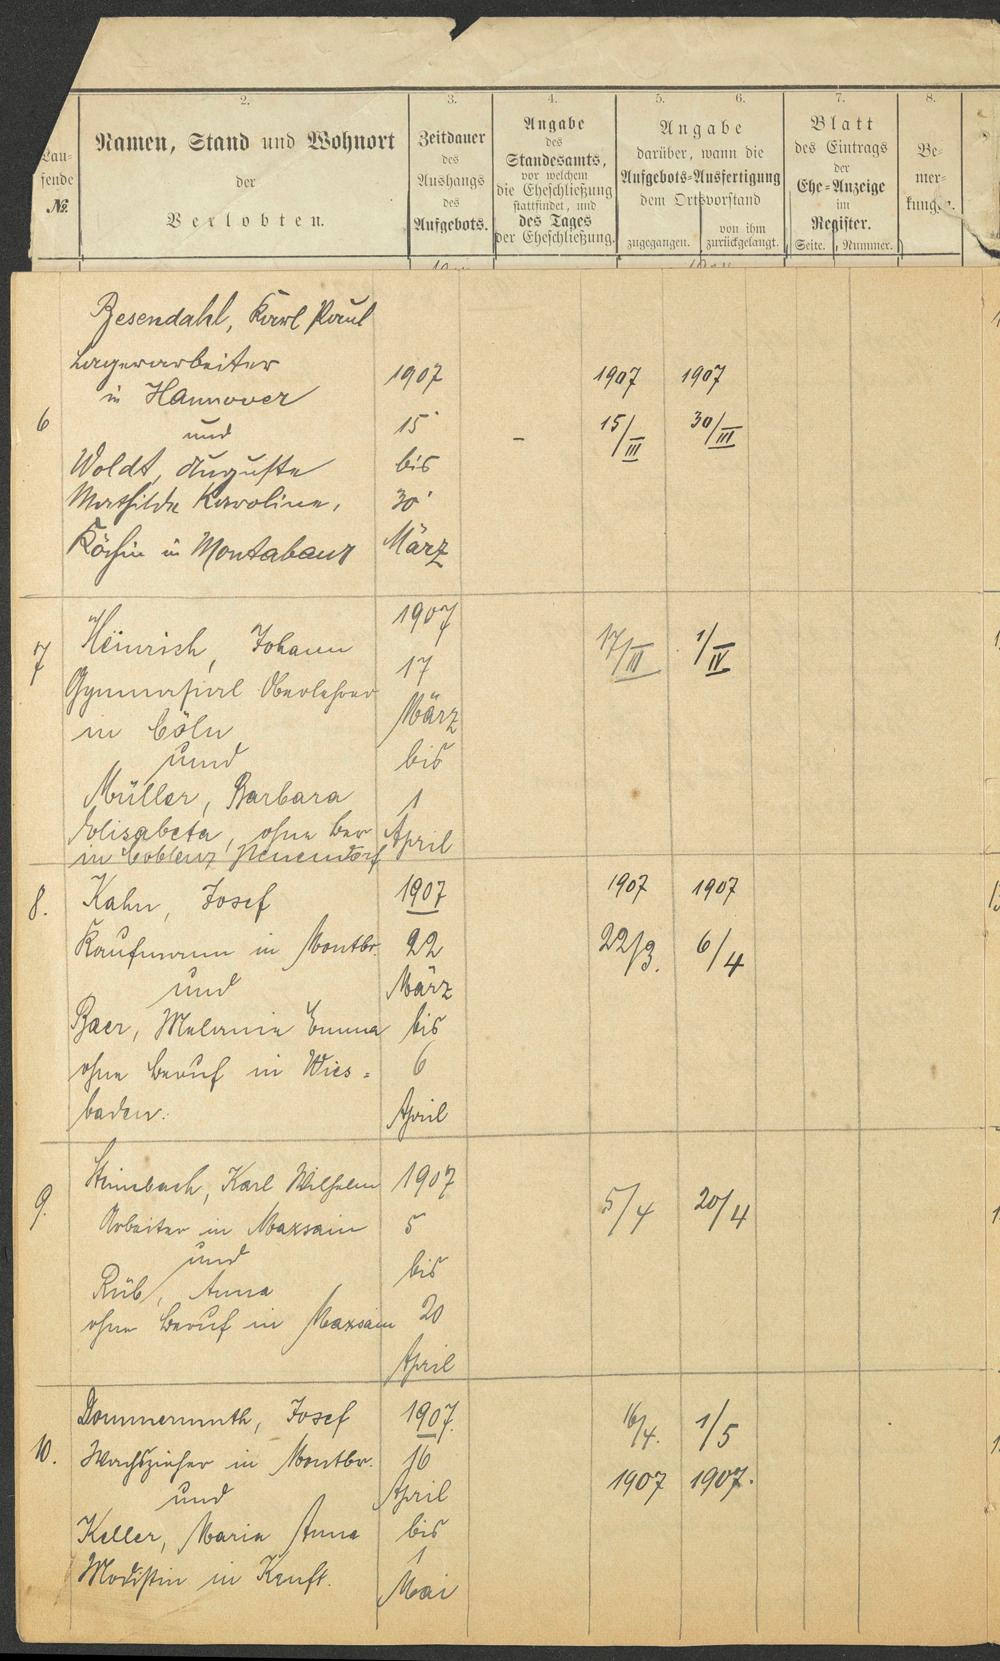 Lau-
fende
No.
2.
Namen, Stand und Wohnort
der
Verlobten.
3.
Zeitdauer
des
Aushangs
des
Aufgebots.
4.
Angabe
des
Standesamts,
vor welchem
die Eheschließung
stattfindet, und
des Tages
der Eheschließung.
5. 6.
Angabe
darüber, wann die
Aufgebots-Ausfertigung
dem Ortsvorstand
zugegangen.
von ihm
zurückgelangt.
7.
Blatt
des Eintrags
der
Ehe-Anzeige
im
Register.
Seite. Nummer.
8.
Be-
mer-
kungen.
6
Besendahl, Karl Paul
Lagerarbeiter
in Hannover
und
Woldt, Auguste
Mathilde Karoline,
Köchin in Montabaur
1907
15
bis
30
März
-
1907
15/III
1907
30/III
7
Heinrich, Johann
Gymnasial Oberlehrer
in Cöln
und
Müller, Barbara
Elisabeta, ohne Ber
in Coblenz Neuendorf
1907
17
März
bis
1
April
17/III
1/IV
8.
Kahn, Josef
Kaufmann in Montbr.
und
Baer, Melanie Emma
ohne Beruf in Wies-
baden.
1907
22
März
bis
6
April
1907
22/3.
1907
6/4
9.
Steinbach, Karl Wilhelm
Arbeiter in Maxsain
und
Rüb, Anna
ohne Beruf in Maxsain
1907
5
bis
20
April
5/4
20/4
10.
Dommermuth, Josef
Wachszieher in Montbr.
und
Keller, Maria Anna
Modistin in
1907.
16
April
bis
1
Mai
16/4.
1907
1/5
1907.